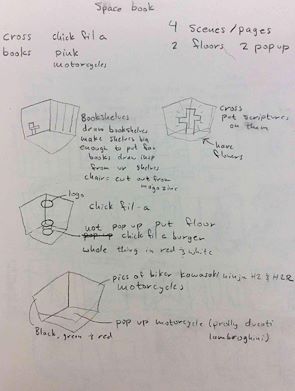 Space book
cross chick fil a
books pink
motorcycles
4 scenes/pages
2 floors 2 pop up
Bookshelves
draw bookshelves
make shelves big
enough to put fav
books draw insp
from ur shelves
chairs cut out from
magazine
cross
put scriptures
on them
have
flowers
logo
chick fil-a
not pop up put floor
pop up chick fil a burger
whole thing in red & white
pics of biker kawasaki ninja H2 & H2R
motorcycles
pop up motorcycle (prolly ducati
lambroghini)
Black, green & red